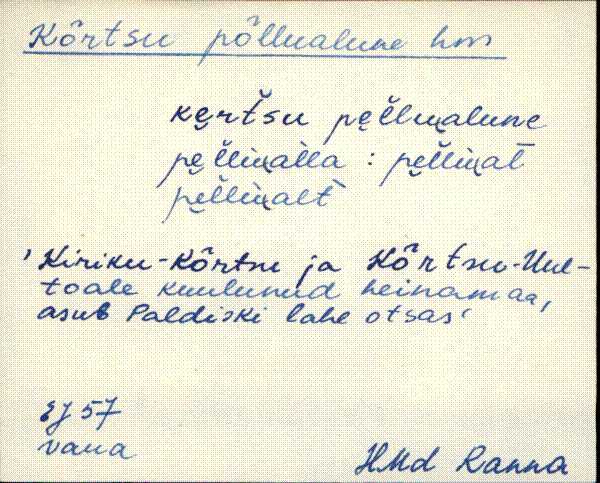 Kõrtsu põllualune hm
ke̮rt̆su pe̮l̆lu̯alune
pe̮l̆lu̯al̀la : pe̮l̆lu̯al̄
pe̮l̆lu̯alt̄
'Kiriku-Kõrtsu ja Kõrtsu-Uue-
toale kuulunud heinamaa,
asub Paldiski lahe otsas'
EJ 57
vana
HMd Ranna